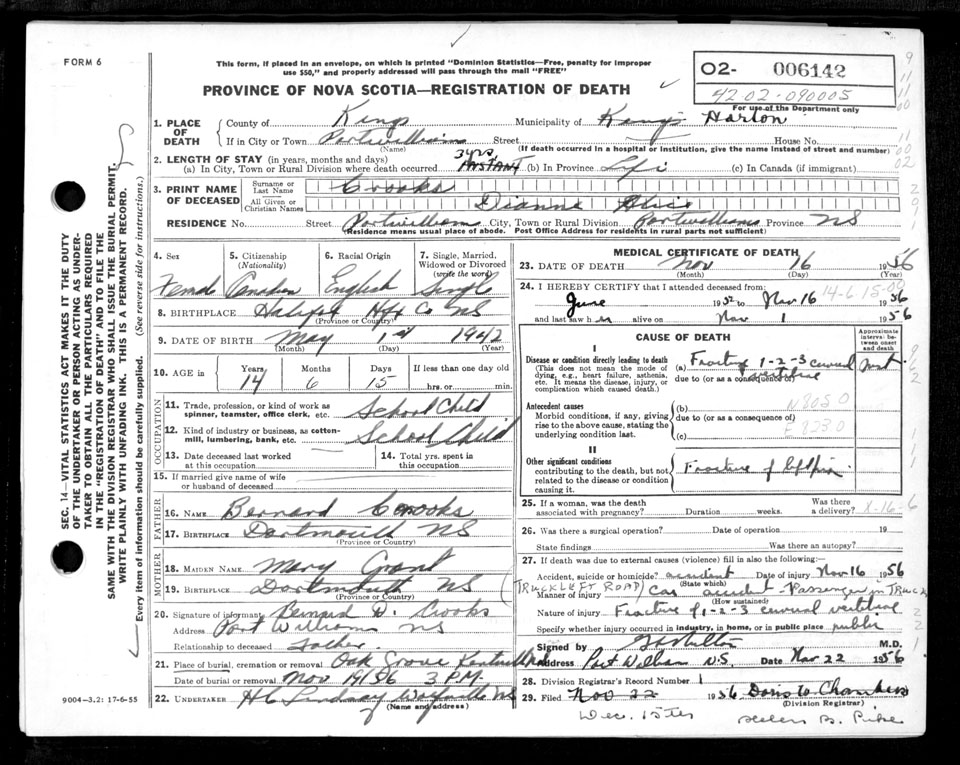 FORM 6
This form, if placed in an envelope, on which is printed "Dominion Statistics—Free, penalty for improper
use $50," and properly addressed will pass through the mail "FREE"
PROVINCE OF NOVA SCOTIA—REGISTRATION OF DEATH
02- 006142
42 02-090005
For use of the Department only
SEC. 14—VITAL STATISTICS ACT MAKES IT THE DUTY
OF THE UNDERTAKER OR PERSON ACTING AS UNDER-
TAKER TO OBTAIN ALL THE PARTICULARS REQUIRED
IN THE "REGISTRATION OF DEATH" AND TO FILE THE
SAME WITH THE DIVISION REGISTRAR WHO SHALL ISSUE THE BURIAL PERMIT.
WRITE PLAINLY WITH UNFADING INK. THIS IS A PERMANENT RECORD.
Every item of information should be carefully supplied. (See reverse side for instructions.)
1. PLACE OF DEATH County of Kings Municipality of Kings Horton
If in City or Town Portwilliams Street House No.
(Name) (If death occurred in a hospital or institution, give the name instead of street and number)
2. LENGTH OF STAY (in years, months and days) 3 yrs
(a) In City, Town or Rural Division where death occurred INSTANT (b) In Province Life (c) In Canada (if immigrant)
3. PRINT NAME OF DECEASED
Surname or Last Name Crooks
All Given or Christian Names Dianne Alice
RESIDENCE No. Street Portwilliams City, Town or Rural Division Portwilliams Province NS
(Residence means usual place of abode. Post Office Address for residents in rural parts not sufficient)
4. Sex 5. Citizenship (Nationality) 6. Racial Origin 7. Single, Married, Widowed or Divorced (write the word)
Female Canadian English Single
8. BIRTHPLACE Halifax Hfx Co NS
(Province or Country)
9. DATE OF BIRTH May 1st 1942
(Month) (Day) (Year)
10. AGE Years Months Days If less than one day old
14 6 15 hrs. or min.
OCCUPATION
11. Trade, profession, or kind of work as spinner, teamster, office clerk, etc. School Child
12. Kind of industry or business, as cotton-mill, lumbering, bank, etc. School Child
13. Date deceased last worked at this occupation 14. Total yrs. spent in this occupation
15. If married give name of wife or husband of deceased
FATHER
16. NAME Bernard Crooks
17. BIRTHPLACE Dartmouth NS
(Province or Country)
MOTHER
18. MAIDEN NAME Mary Grant
19. BIRTHPLACE Dartmouth NS
(Province or Country)
20. Signature of informant Bernard D. Crooks
Address Port Williams NS
Relationship to deceased Father
21. Place of burial, cremation or removal Oak Grove Kentville NS
Date of burial or removal Nov 19/56 3 P.M.
22. UNDERTAKER HC Lindsay Wolfville NS
(Name and address)
9004-3.2: 17-6-55
MEDICAL CERTIFICATE OF DEATH
23. DATE OF DEATH Nov 16 1956
(Month) (Day)
24. I HEREBY CERTIFY that I attended deceased from: 14-6 15-00
June 1952 to Nov 16 1956
and last saw her alive on Nov 1 1956
CAUSE OF DEATH
Approximate interval between onset and death
I
Disease or condition directly leading to death
(This does not mean the mode of dying, e.g., heart failure, asthenia, etc. It means the disease, injury, or complication which caused death.)
(a) Fracture 1-2-3 cervical vertebrae Inst
due to (or as a consequence of)
Antecedent causes
Morbid conditions, if any, giving rise to the above cause, stating the underlying condition last.
(b) N8050
due to (or as a consequence of)
(c) E8230
II
Other significant conditions
contributing to the death, but not related to the disease or condition causing it.
Fracture of
25. If a woman, was the death associated with pregnancy? Duration weeks. Was there a delivery? X-16-6
26. Was there a surgical operation? Date of operation 19
State findings Was there an autopsy?
27. If death was due to external causes (violence) fill in also the following:—
Accident, suicide or homicide? accident Date of injury Nov 16 1956
(State which)
(TRUCK LEFT ROAD)
Manner of injury Car accident - Passenger in TRUCK
(How sustained)
Nature of injury Fracture of 1-2-3 cervical vertebrae
Specify whether injury occurred in industry, in home, or in public place public
Signed by M.D.
Address Port William N.S. Date Nov 22 1956
28. Division Registrar's Record Number 1
29. Filed Nov 22 1956 Doris W Chambers
(Division Registrar)
Dec. 15th Helen B. Pike